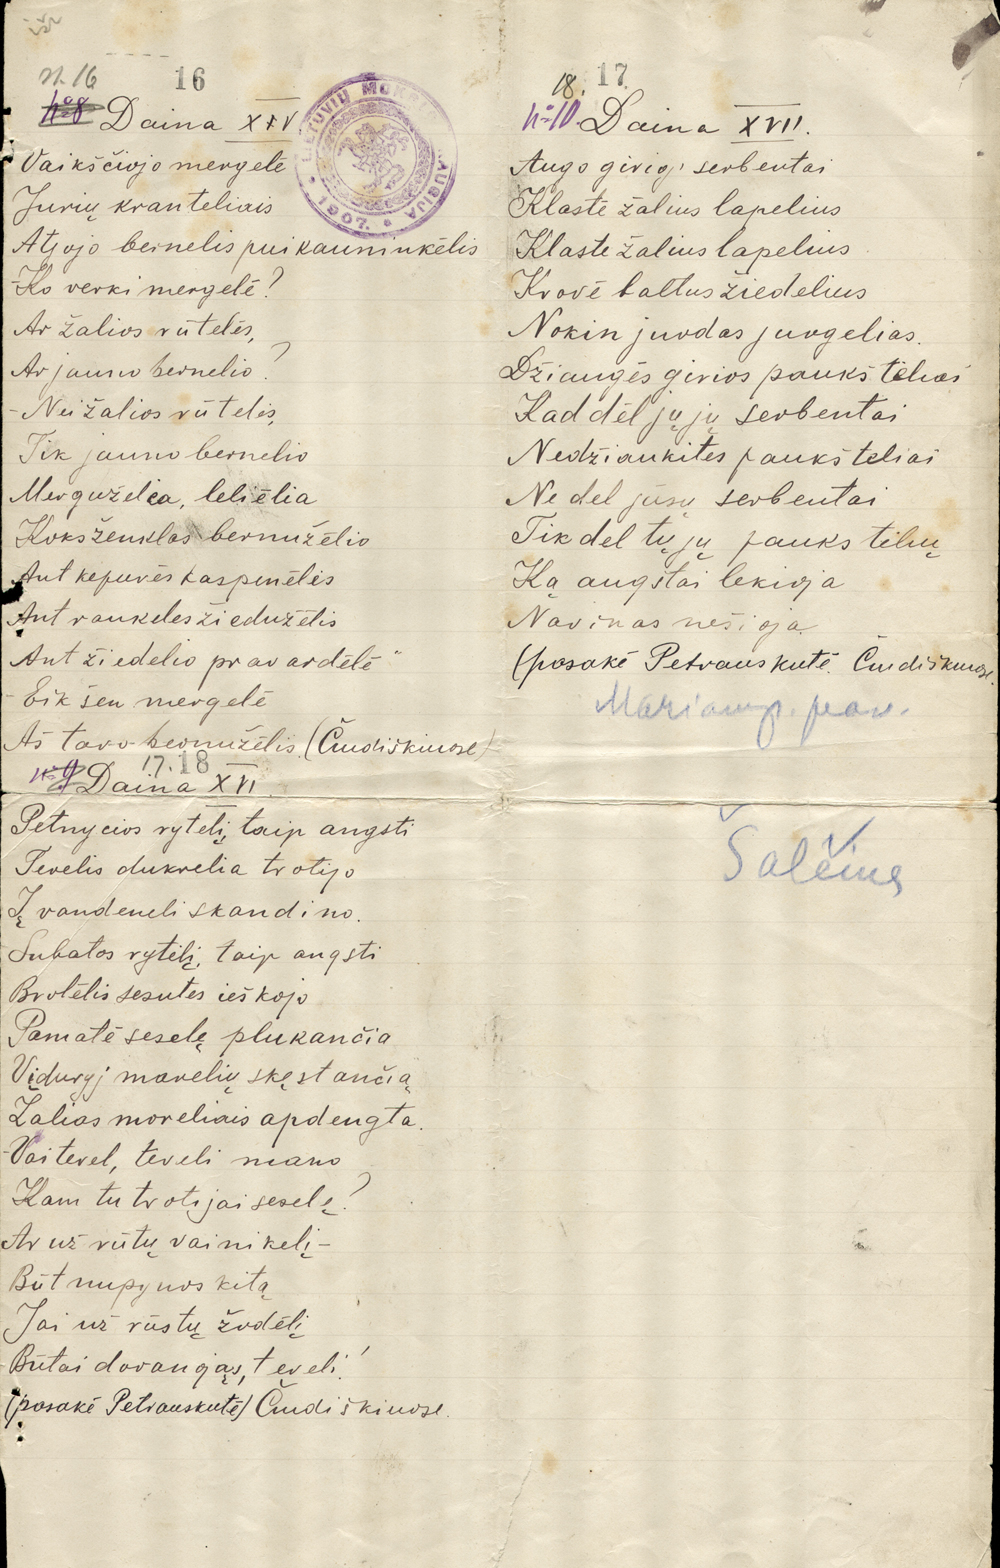 n. 16
16
Nº8 Daina XIV
LIETUVIŲ MOKSL DRAUGIJA
Vaikščiojo mergelė
Jurių kranteliais
Atjojo bernelis puikauninkėlis
-Ko verki mergelė?
Ar žalios rūtelės,
Ar jauno bernelio?
- Nei žalios rūtelės,
Tik jauno bernelio
Merguželėa, leliėlia
Koks ženklas bernužėlio
Ant kepurės kaspinėlės
Ant rankelės žiedužėlis
Ant žiedelio pravardėlė"
- Eik šen mergelė
Aš tavo bernužėlis (Čiudiškiuose)
Nº9
17. 18
Daina XVI.
Petnycios rytelį, taip angsti
Tevelis dukrelia trotijo
Į vandeneli skandino.
Subatos rytėlį, taip angsti
Brolėlis sesutės ieškojo
Pamatė seselę plukančia
Viduryj marelių skęstančią
Žalias moreliais apdengta.
-Vai tevel, teveli mano
Kam tu trotijai seselę?
Ar už rūtų vainikelį -
Būt nupynus kitą
Jai už rūstų žodėlį
Būtai dovanojąs, teveli!
(pasakė Petrauskutė) Čiudiškiuose.
18.
17
Nº10. Daina XVII.
Augo girioj serbentai
Klastė žalius lapelius
Klaste žalius lapelius
Krovė baltus žiedelius
Nokin juodas juogelias.
Džiaugės girios paukštėliai
Kad dėl jų jų serbentai
Nedžiaukitės paukšteliai
Ne del jūsų serbentai
Tik del tų jų paukštelių
Ką augštai lekioja
Navinas nešioja
(pasakė Petrauskutė. Čiudiškiuose.
Mariamp. pav.